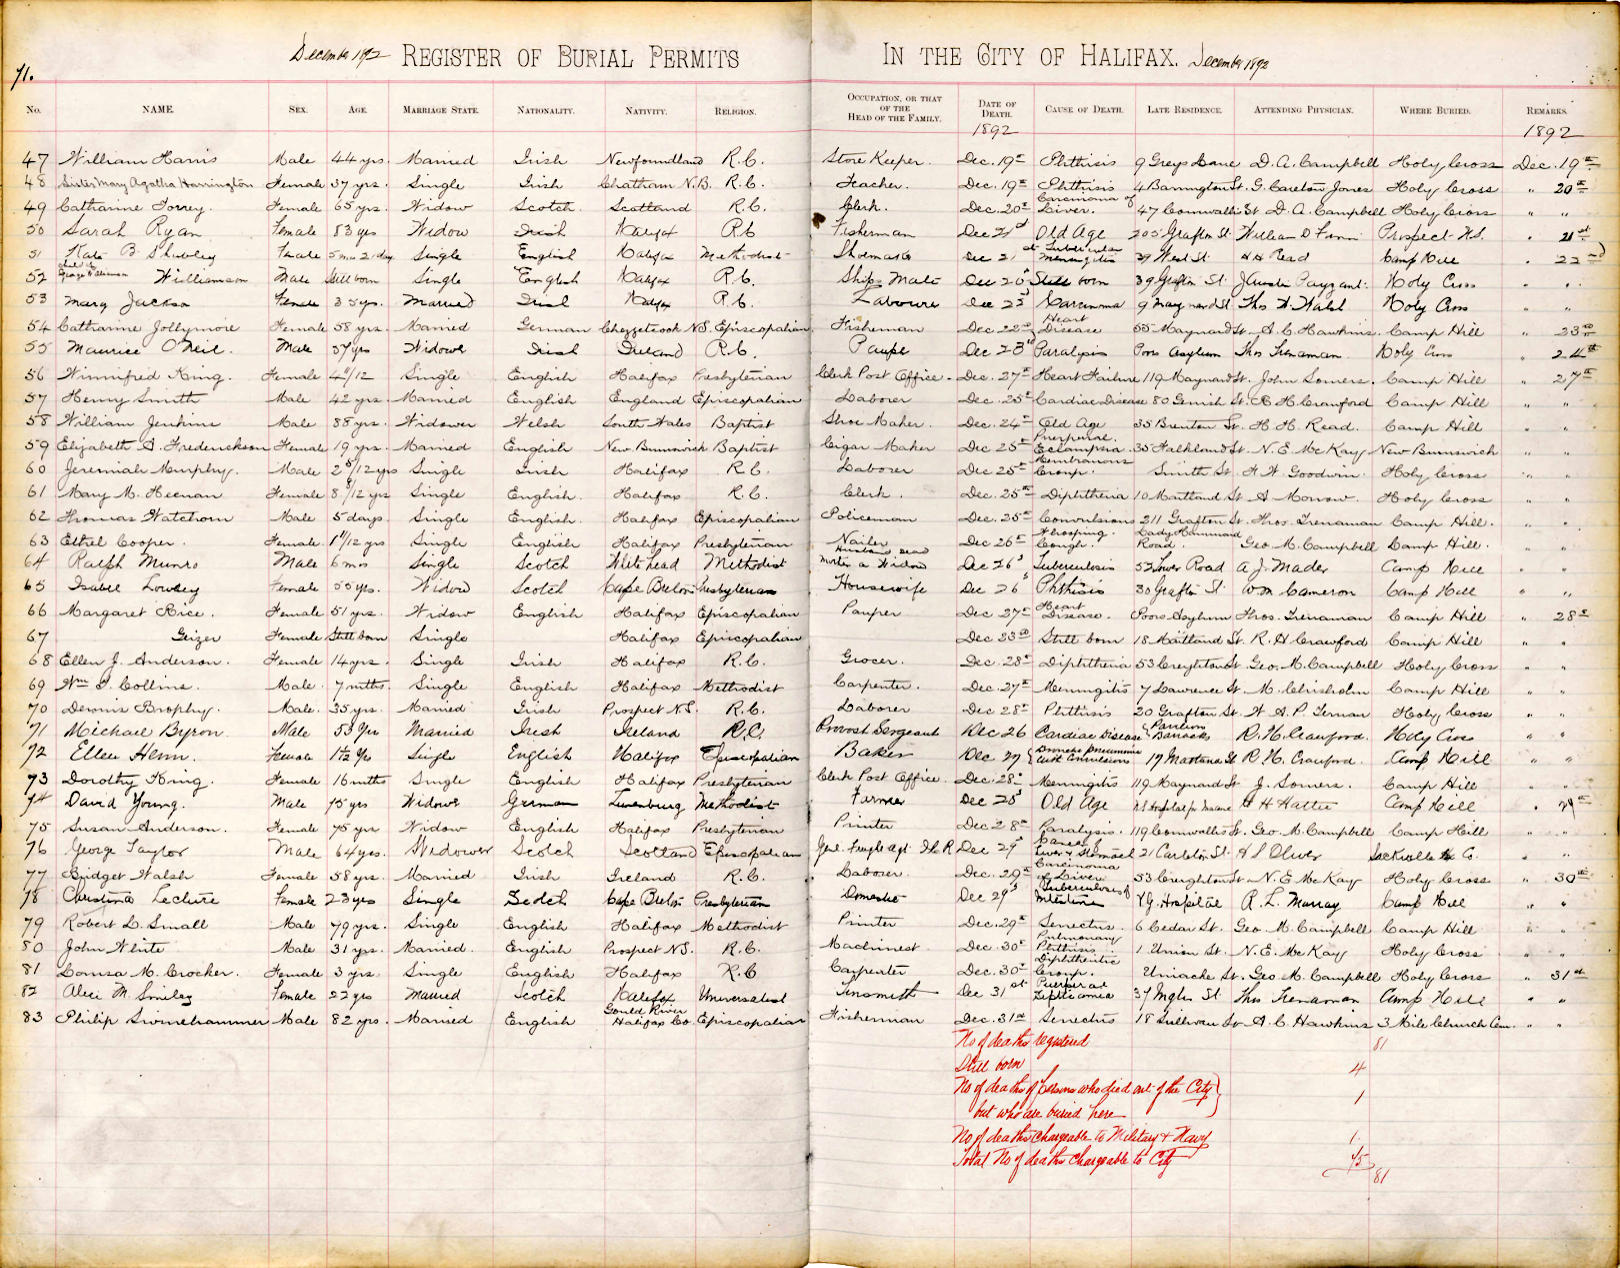 71.
December 1892 REGISTER OF BURIAL PERMITS IN THE CITY OF HALIFAX. December 1892
No. NAME. SEX. AGE. MARRIAGE STATE. NATIONALITY. NATIVITY. RELIGION. OCCUPATION, OR THAT OF THE HEAD OF THE FAMILY. DATE OF DEATH. CAUSE OF DEATH. LATE RESIDENCE. ATTENDING PHYSICIAN. WHERE BURIED. REMARKS.
1892 1892
47 William Harris Male 44 yrs. Married Irish Newfoundland R.C. Store Keeper. Dec. 19th Phthisis 9 Greys Lane D. A. Campbell Holy Cross Dec. 19th
48 Sister Mary Agatha Harrington Female 37 yrs. Single Irish Chatham N.B. R.C. Teacher. Dec. 19th Phthisis 4 Barrington St. G. Carelton Jones Holy Cross " 20th
49 Catharine Torrey. Female 65 yrs. Widow Scotch Scotland R.C. Clerk. Dec. 20th Carcinoma of Liver. 47 Cornwallis St D. A. Campbell Holy Cross " "
50 Sarah Ryan Female 83 yrs Widow Irish Halifax R.C. Fisherman Dec 21st Old Age 205 Grafton St. William D Finn Prospect N.S. " 21st
51 Kate B Shubley Female 5 mos 21 day Single English Halifax Methodist Shoemaker Dec 21st Tubercular Meningitis 29 West St. H H Read Camp Hill " 22nd
52 child of George Williamson Williamson Male Still born Single English Halifax R.C. Ships Mate Dec 20th Still born 39 Grafton St. J Austin Payzant. Holy Cross " "
53 Mary Jackson Female 35 yrs. Married Irish Halifax R.C. Labourer Dec 23d Carcinoma 9 Maynard St. Thos W. Walsh Holy Cross " "
54 Catharine Jollymore Female 58 yrs. Married German Chezzetcook N.S. Episcopalian Fisherman Dec 22nd Heart Disease 55 Maynard St. A. C. Hawkins. Camp Hill " 23rd
55 Maurice O'Neil. Male 57 yrs Widower Irish Ireland R.C. Pauper Dec 23rd Paralysis Poors Asylum Thos Trenaman Holy Cross " 24th
56 Winnifred King. Female 4 11/12 Single English Halifax Presbyterian Clerk Post Office. Dec. 27th Heart Failure 119 Maynard St. John Somers. Camp Hill " 27th
57 Henry Smith Male 42 yrs. Married English England Episcopalian Laborer Dec. 25th Cardiac Disease 80 Gerrish St. R H. Crawford Camp Hill " "
58 William Jenkins Male 88 yrs. Widower Welsh South Wales Baptist Shoe Maker. Dec. 24th Old Age 35 Brenton St. H. H. Read. Camp Hill " "
59 Elizabeth S. Frederickson Female 19 yrs. Married English New Brunswick Baptist Cigar Maker Dec 25th Puerperal Eclampsia 35 Falkland St. N. E. McKay New Brunswick " "
60 Jeremiah Murphy. Male 2 8/12 yrs Single Irish Halifax R.C. Laborer Dec 25th Membranous Croup. Smith St. F. W. Goodwin. Holy Cross " "
61 Mary M. Heenan Female 8 9/12 yrs Single English. Halifax. R.C. Clerk. Dec. 25th Diphtheria 10 Maitland St A. Morrow. Holy Cross " "
62 Thomas Watchorn Male 5 days. Single English. Halifax Episcopalian Policeman Dec. 25th Convulsions 211 Grafton St. Thos. Trenaman Camp Hill. " "
63 Ethel Cooper. Female. 1 11/12 yrs Single English Halifax Presbyterian Nailer Dec 26th Whooping Cough. Lady Hammond Road. Geo. M. Campbell Camp Hill. " "
64 Ralph Munro Male 6 mos Single Scotch White head Methodist Husband dead Mother a Widow Dec 26th Tuberculosis 52 Lower Road A. J. Mader Camp Hill " "
65 Isabel Lowley Female 55 yrs. Widow Scotch Cape Breton Presbyterian Housewife Dec 26th Phthisis 30 Grafton St. Wm Cameron Camp Hill " "
66 Margaret Rice. Female 51 yrs. Widow English Halifax Episcopalian Pauper Dec 27th Heart Disease. Poors Asylum Thos. Trenaman Camp Hill " 28th
67 Geizer Female Still born Single Halifax Episcopalian Dec 23rd Still born 18 Maitland St. R. H. Crawford Camp Hill " "
68 Ellen J. Anderson. Female 14 yrs. Single Irish Halifax R.C. Grocer. Dec. 28th Diphtheria 53 Creighton St Geo. M. Campbell Holy Cross " "
69 Wm S. Collins. Male. 7 mths. Single English Halifax Methodist Carpenter. Dec. 27th Meningitis 7 Lawrence St M. Chisholm Camp Hill " "
70 Dennis Brophy. Male. 35 yrs. Married Irish Prospect N.S. R.C. Laborer Dec 28th Phthisis 20 Grafton St. W. A. P. Ternan Holy Cross " "
71 Michael Byron. Male 53 Yrs Married Irish Ireland R.C. Provost Sergeant Dec 26 Cardiac Disease Pavilion Barracks R. H. Crawford. Holy Cross " "
72 Ellen Henn. Female 1 1/12 Yrs Single English Halifax Episcopalian Baker Dec 27 Broncho Pneumonia with Convulsions 17 Maitland St R. H. Crawford. Camp Hill " "
73 Dorothy King. Female 16 mths Single English Halifax Presbyterian Clerk Post Office. Dec. 28th Meningitis 119 Maynard St. J. Somers. Camp Hill " "
74 David Young. Male 75 yrs Widower German Lunenburg Methodist Farmer Dec 28th Old Age N S Hospital for Insane H H Hattie Camp Hill " 29th
75 Susan Anderson. Female 75 yrs Widow English Halifax Presbyterian Printer Dec 28th Paralysis. 119 Cornwallis St. Geo. M. Campbell Camp Hill " "
76 George Taylor Male 64 yrs. Widower Scotch Scotland Episcopalian Genl. Freight Agt. I.C.R Dec 29th Cancer of Liver & Stomach 21 Carleton St. H S Oliver Sackville Co. " "
77 Bridget Walsh Female 58 yrs. Married Irish Ireland R.C. Laborer. Dec. 29th Carcinoma of Liver 53 Creighton St. N. E. McKay Holy Cross " 30th
78 Christina Lecture Female 23 yrs Single Scotch Cape Breton Presbyterian Domestic Dec 29th Tuberculosis of Intestine V G. Hospital R. L. Murray Camp Hill " "
79 Robert D. Small Male 79 yrs. Single English Halifax Methodist Printer Dec. 29th Senectus. 6 Cedar St. Geo. M. Campbell Camp Hill " "
80 John White Male 31 yrs. Married. English Prospect N.S. R.C. Machinest. Dec. 30th Pulmonary Phthisis. 1 Union St. N. E. McKay Holy Cross " "
81 Louisa M. Crocker. Female 3 yrs. Single English Halifax R.C Carpenter Dec. 30th Diphtheritic Croup. Uniacke St. Geo M. Campbell Holy Cross " 31st
82 Alice M. Smiley Female 22 yrs Married Scotch Halifax Universalist Tinsmith Dec 31st Puerperal Septicaemia 37 Inglis St. Thos Trenaman Camp Hill " "
83 Philip Swinehammer Male 82 yrs. Married English Gould River Halifax Co Episcopalian Fisherman Dec. 31st Senectus 18 Sullivan St. A. C. Hawkins 3 Mile Church Cem. " "
No of deaths registered 81
Still born 4
No of deaths of persons who died out of the City
but who are buried here 1
No of deaths chargeable to Military & Navy 1.
Total No of deaths chargeable to City 75
81